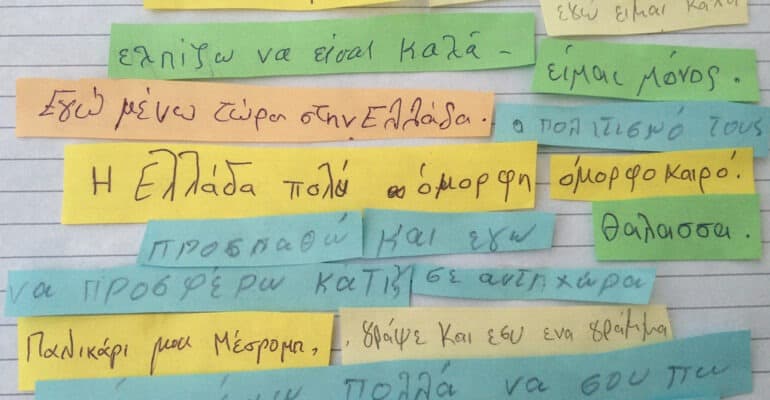 εγώ ειμαι καλά
ελπίζω να είσαι καλά -
είμαι μόνος.
Εγώ μένω τώρα στην Ελλάδα.
ο πολιτισμό τους
Η Ελλάδα πολύ όμορφη όμορφο καιρό.
προσπαθώ και εγω
θάλασσα.
να προσφέρω κατι σε αυτη χώρα
Παλικάρι μου Μέσρομπ, γράψε και εσυ ενα γράμμα
πολλά να σου πω